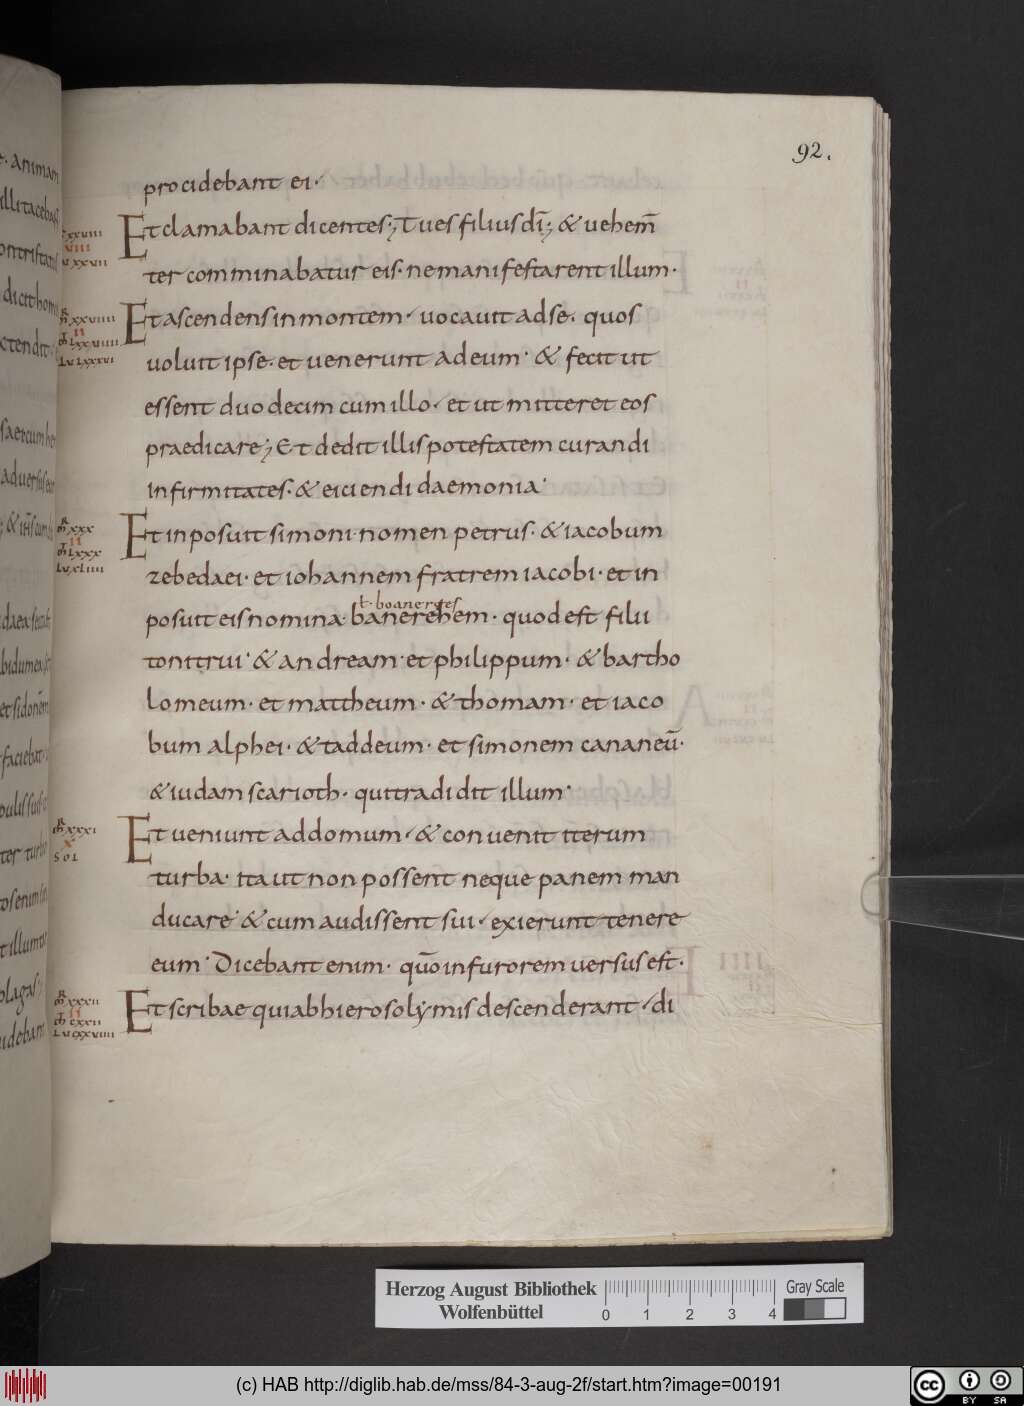 92.
procidebant ei·
Et clamabant dicentes; Tu es filius dī; & uehem̄
ter comminabatur eis· ne manifestarent illum·
Et ascendens in montem· uocauit ad se· quos
uoluit ipse· et uenerunt ad eum· & fecit ut
essent duodecim cum illo· et ut mitteret eos
praedicare; Et dedit illis potestatem curandi
infirmitates· & eiciendi daemonia·
Et inposuit simoni nomen petrus· & iacobum
zebedaei· et iohannem fratrem iacobi· et in
ł· boanerges
posuit eis nomina banerehem· quod est filii
tonitrui· & andream· et philippum· & bartho
lomeum· et mattheum· & thomam· et iaco
bum alphei· & taddeum· et simonem cananeū·
& iudam scarioth· qui tradidit illum·
Et ueniunt ad domum· & conuenit iterum
turba· ita ut non possent neque panem man
ducare· & cum audissent sui· exierunt tenere
eum· Dicebant enim· quō in furorem uersus est·
Et scribae qui ab hierosolymis descenderant· di
Herzog August Bibliothek
Wolfenbüttel
0 1 2 3 4
Gray Scale
(c) HAB http://diglib.hab.de/mss/84-3-aug-2f/start.htm?image=00191
cc BY SA